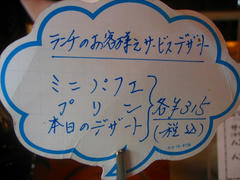 ランチのお客様えサービスデザート
ミニパフェ
プリン
本日のデザート
各¥315
(税込)